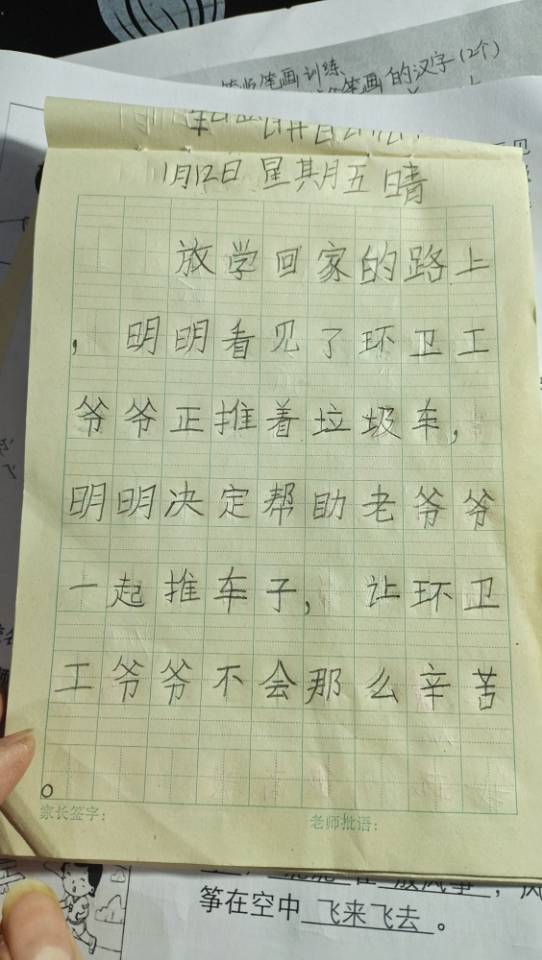 笔画训练
笔画的汉字(2个)
1月12日 星期五 晴
放学回家的路上
，明明看见了环卫工
爷爷正推着垃圾车，
明明决定帮助老爷爷
一起推车子，让环卫
工爷爷不会那么辛苦
。
家长签字：
老师批语：
筝在空中 飞来飞去 。